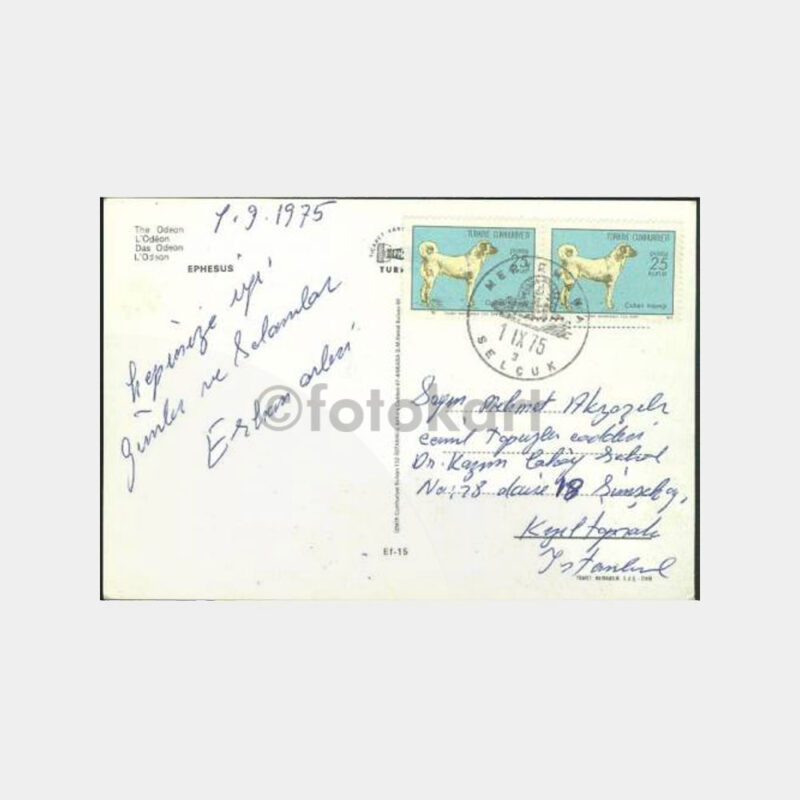 1.9.1975
The Odeon
L'Odéon
Das Odeon
L'Odeon
EPHESUS
hepinize iyi
günler ve Selamlar
Erhan ailesi
TÜRKİYE CUMHURİYETİ
POSTA
25
KURUŞ
TÜRKİYE CUMHURİYETİ
POSTA
25
KURUŞ
Çoban köpeği
1 IX 75
3
SELÇUK
©fotokart
Sayın Mehmet
Cemil Topuzlu caddesi
Dr. Kazım Sokak
No: 28 daire 18
Kızıltoprak
Istanbul
Ef-15